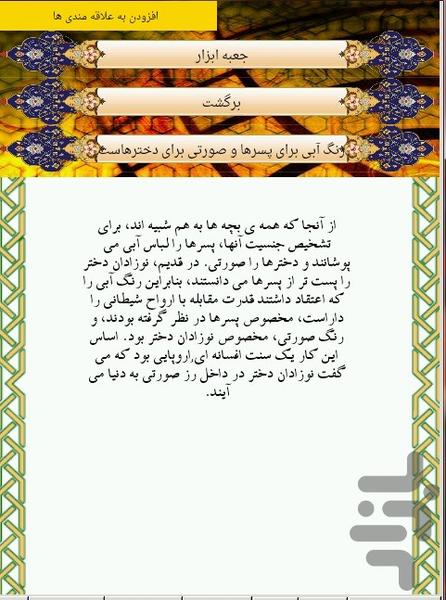 افزودن به علاقه مندی ها
جعبه ابزار
برگشت
رنگ آبی برای پسرها و صورتی برای دخترهاست
از آنجا که همه ی بچه ها به هم شبیه اند، برای
تشخیص جنسیت آنها، پسرها را لباس آبی می
پوشانند و دخترها را صورتی. در قدیم، نوزادان دختر
را پست تر از پسرها می دانستند، بنابراین رنگ آبی را
که اعتقاد داشتند قدرت مقابله با ارواح شیطانی را
داراست، مخصوص پسرها در نظر گرفته بودند، و
رنگ صورتی، مخصوص نوزادان دختر بود. اساس
این کار یک سنت افسانه ای ٕاروپایی بود که می
گفت نوزادان دختر در داخل رز صورتی به دنیا می
آیند.